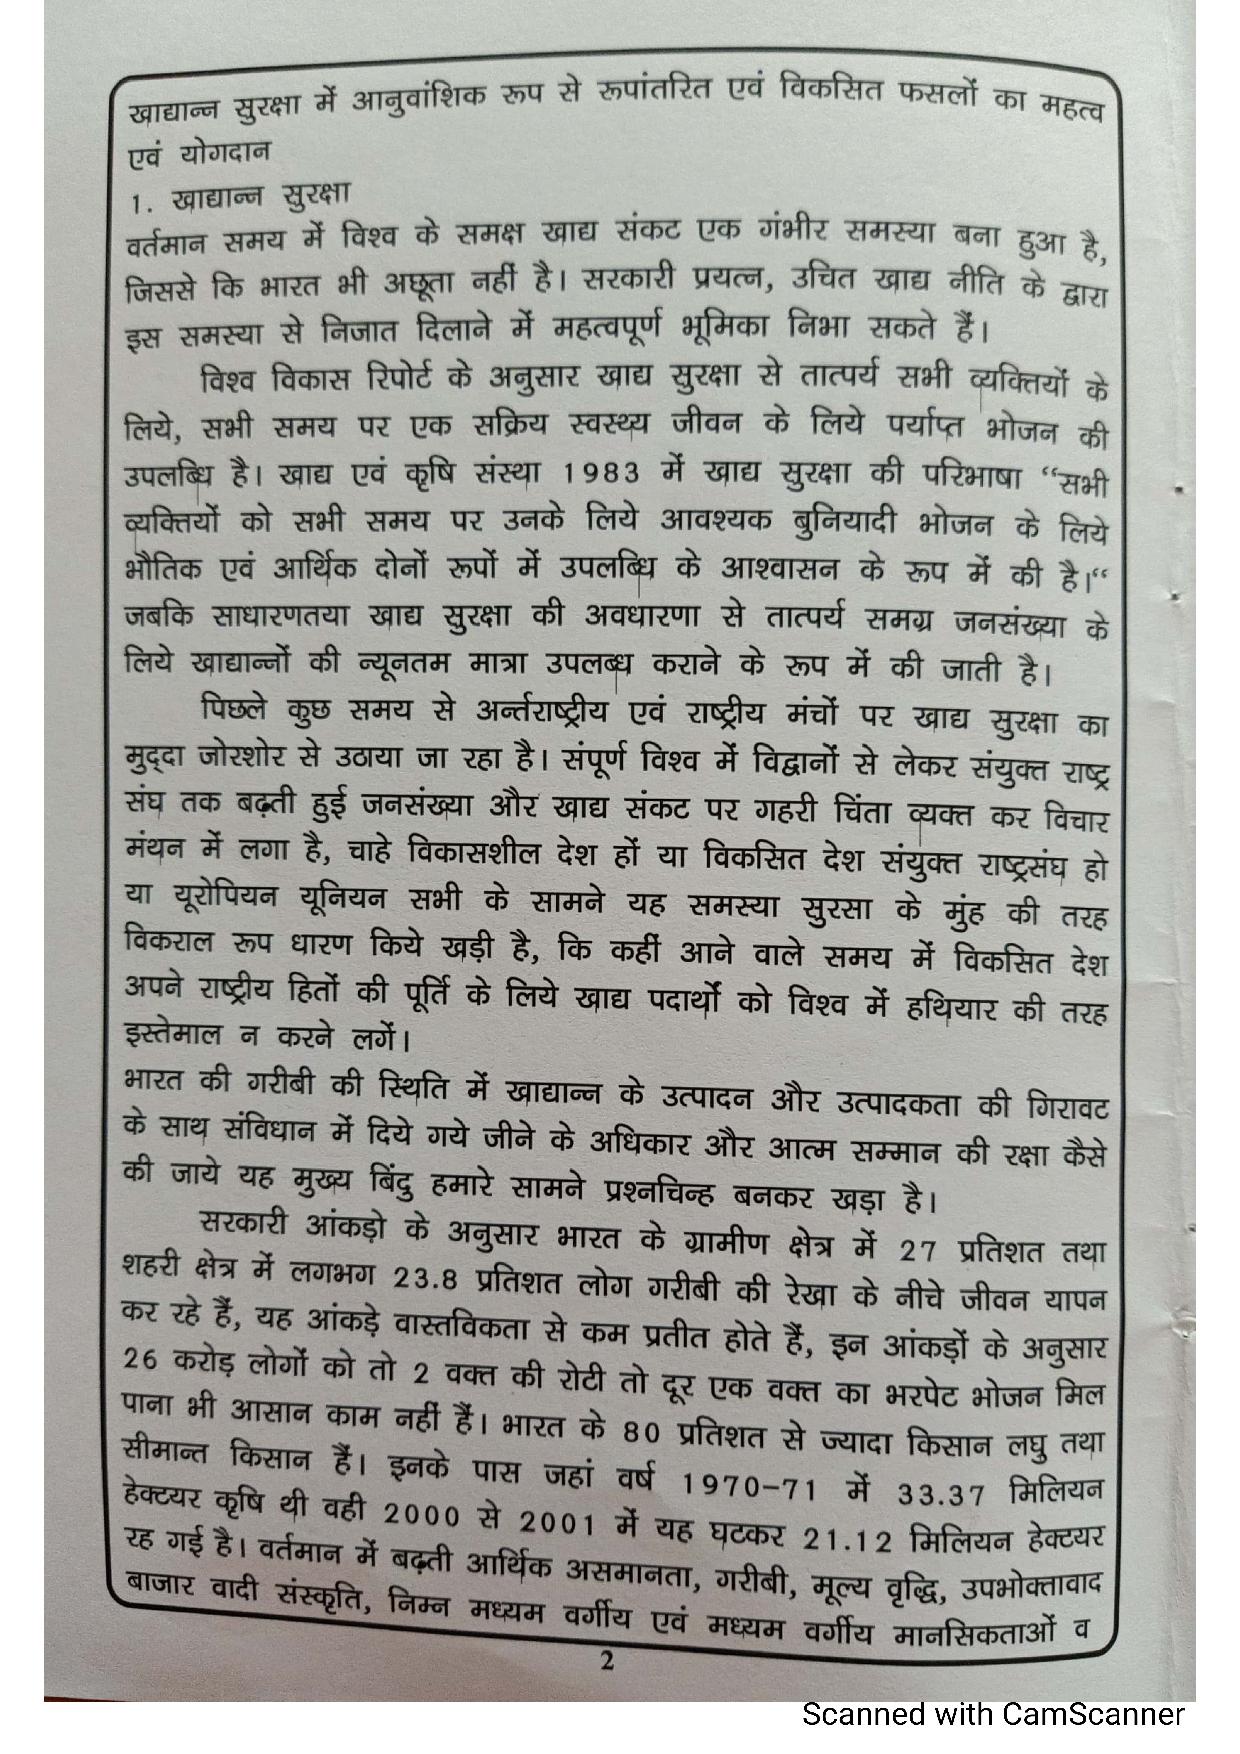 खाद्यान्न सुरक्षा में आनुवांशिक रूप से रूपांतरित एवं विकसित फसलों का महत्व
एवं योगदान
1. खाद्यान्न सुरक्षा
वर्तमान समय में विश्व के समक्ष खाद्य संकट एक गंभीर समस्या बना हुआ है,
जिससे कि भारत भी अछूता नहीं है। सरकारी प्रयत्न, उचित खाद्य नीति के द्वारा
इस समस्या से निजात दिलाने में महत्वपूर्ण भूमिका निभा सकते हैं।
विश्व विकास रिपोर्ट के अनुसार खाद्य सुरक्षा से तात्पर्य सभी व्यक्तियों के
लिये, सभी समय पर एक सक्रिय स्वस्थ्य जीवन के लिये पर्याप्त भोजन की
उपलब्धि है। खाद्य एवं कृषि संस्था 1983 में खाद्य सुरक्षा की परिभाषा “सभी
व्यक्तियों को सभी समय पर उनके लिये आवश्यक बुनियादी भोजन के लिये
भौतिक एवं आर्थिक दोनों रूपों में उपलब्धि के आश्वासन के रूप में की है।“
जबकि साधारणतया खाद्य सुरक्षा की अवधारणा से तात्पर्य समग्र जनसंख्या के
लिये खाद्यान्नों की न्यूनतम मात्रा उपलब्ध कराने के रूप में की जाती है।
पिछले कुछ समय से अर्न्तराष्ट्रीय एवं राष्ट्रीय मंचों पर खाद्य सुरक्षा का
मुद्‌दा जोरशोर से उठाया जा रहा है। संपूर्ण विश्व में विद्वानों से लेकर संयुक्त राष्ट्र
संघ तक बढ़ती हुई जनसंख्या और खाद्य संकट पर गहरी चिंता व्यक्त कर विचार
मंथन में लगा है, चाहे विकासशील देश हों या विकसित देश संयुक्त राष्ट्रसंघ हो
या यूरोपियन यूनियन सभी के सामने यह समस्या सुरसा के मुंह की तरह
विकराल रूप धारण किये खड़ी है, कि कहीं आने वाले समय में विकसित देश
अपने राष्ट्रीय हितों की पूर्ति के लिये खाद्य पदार्थों को विश्व में हथियार की तरह
इस्तेमाल न करने लगें।
भारत की गरीबी की स्थिति में खाद्यान्न के उत्पादन और उत्पादकता की गिरावट
के साथ संविधान में दिये गये जीने के अधिकार और आत्म सम्मान की रक्षा कैसे
की जाये यह मुख्य बिंदु हमारे सामने प्रश्नचिन्ह बनकर खड़ा है।
सरकारी आंकड़ो के अनुसार भारत के ग्रामीण क्षेत्र में 27 प्रतिशत तथा
शहरी क्षेत्र में लगभग 23.8 प्रतिशत लोग गरीबी की रेखा के नीचे जीवन यापन
कर रहे हैं, यह आंकड़े वास्तविकता से कम प्रतीत होते हैं, इन आंकड़ों के अनुसार
26 करोड़ लोगों को तो 2 वक्त की रोटी तो दूर एक वक्त का भरपेट भोजन मिल
पाना भी आसान काम नहीं हैं। भारत के 80 प्रतिशत से ज्यादा किसान लघु तथा
सीमान्त किसान हैं। इनके पास जहां वर्ष 1970-71 में 33.37 मिलियन
हेक्टयर कृषि थी वही 2000 से 2001 में यह घटकर 21.12 मिलियन हेक्टयर
रह गई है। वर्तमान में बढ़ती आर्थिक असमानता, गरीबी, मूल्य वृद्धि, उपभोक्तावाद
बाजार वादी संस्कृति, निम्न मध्यम वर्गीय एवं मध्यम वर्गीय मानसिकताओं व
2
Scanned with CamScanner